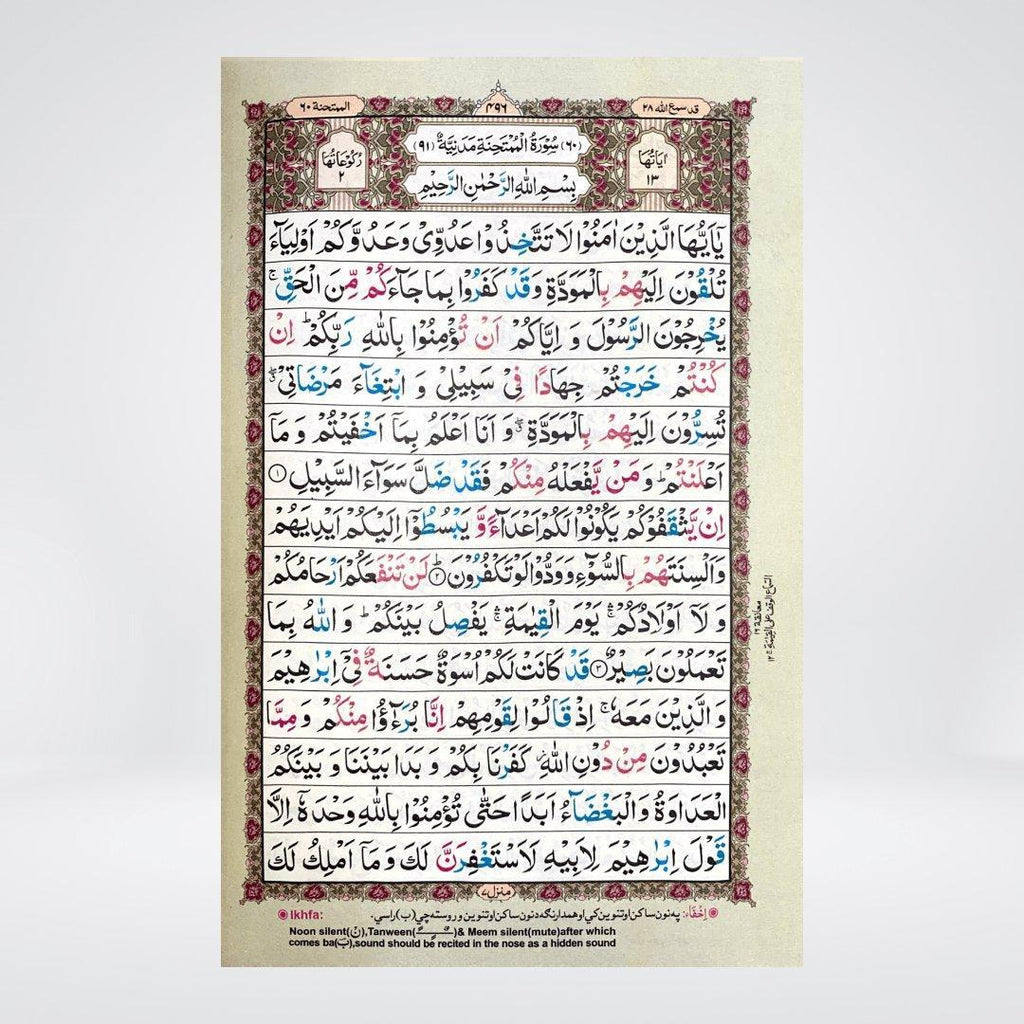 قد سمع الله ٢٨
٤٩٦
الممتحنة ٦٠
اٰیَاتُهَا ١٣
(٦٠) سُوْرَةُ الْمُمْتَحِنَةِ مَدَنِيَّةٌ (٩١)
رُكُوْعَاتُهَا ٢
بِسْمِ اللّٰهِ الرَّحْمٰنِ الرَّحِيْمِ
يٰۤاَيُّهَا الَّذِيْنَ اٰمَنُوْا لَا تَتَّخِذُوْا عَدُوِّىْ وَعَدُوَّكُمْ اَوْلِيَآءَ
تُلْقُوْنَ اِلَيْهِمْ بِالْمَوَدَّةِ وَقَدْ كَفَرُوْا بِمَا جَآءَكُمْ مِّنَ الْحَقِّ ۚ
يُخْرِجُوْنَ الرَّسُوْلَ وَ اِيَّاكُمْ اَنْ تُؤْمِنُوْا بِاللّٰهِ رَبِّكُمْ ؕ اِنْ
كُنْتُمْ خَرَجْتُمْ جِهَادًا فِىْ سَبِيْلِىْ وَ ابْتِغَآءَ مَرْضَاتِىْ ۖ
تُسِرُّوْنَ اِلَيْهِمْ بِالْمَوَدَّةِ ۖ وَ اَنَا اَعْلَمُ بِمَاۤ اَخْفَيْتُمْ وَ مَاۤ
اَعْلَنْتُمْ ؕ وَ مَنْ يَّفْعَلْهُ مِنْكُمْ فَقَدْ ضَلَّ سَوَآءَ السَّبِيْلِ ۝١
اِنْ يَّثْقَفُوْكُمْ يَكُوْنُوْا لَكُمْ اَعْدَآءً وَّ يَبْسُطُوْۤا اِلَيْكُمْ اَيْدِيَهُمْ
وَاَلْسِنَتَهُمْ بِالسُّوْٓءِ وَوَدُّوْا لَوْ تَكْفُرُوْنَ ؕ۝٢ لَنْ تَنْفَعَكُمْ اَرْحَامُكُمْ
وَ لَاۤ اَوْلَادُكُمْ ۛۚ يَوْمَ الْقِيٰمَةِ ۛۚ يَفْصِلُ بَيْنَكُمْ ؕ وَ اللّٰهُ بِمَا
تَعْمَلُوْنَ بَصِيْرٌ ۝٣ قَدْ كَانَتْ لَكُمْ اُسْوَةٌ حَسَنَةٌ فِىْۤ اِبْرٰهِيْمَ
وَ الَّذِيْنَ مَعَهٗ ۚ اِذْ قَالُوْا لِقَوْمِهِمْ اِنَّا بُرَءٰٓؤُا مِنْكُمْ وَ مِمَّا
تَعْبُدُوْنَ مِنْ دُوْنِ اللّٰهِ ۫ كَفَرْنَا بِكُمْ وَ بَدَا بَيْنَنَا وَ بَيْنَكُمُ
الْعَدَاوَةُ وَ الْبَغْضَآءُ اَبَدًا حَتّٰى تُؤْمِنُوْا بِاللّٰهِ وَحْدَهٗۤ اِلَّا
قَوْلَ اِبْرٰهِيْمَ لِاَبِيْهِ لَاَسْتَغْفِرَنَّ لَكَ وَ مَاۤ اَمْلِكُ لَكَ
معانقة ١٦
منزل ٧
اِخْفَاء: په نون ساکن او تنوین کي او همدارنګه د نون ساکن او تنوین وروسته چي (ب) راسي.
Ikhfa:
Noon silent(نْ),Tanween(ـًـٍـٌ)& Meem silent(mute)after which
comes ba(بَ),sound should be recited in the nose as a hidden sound